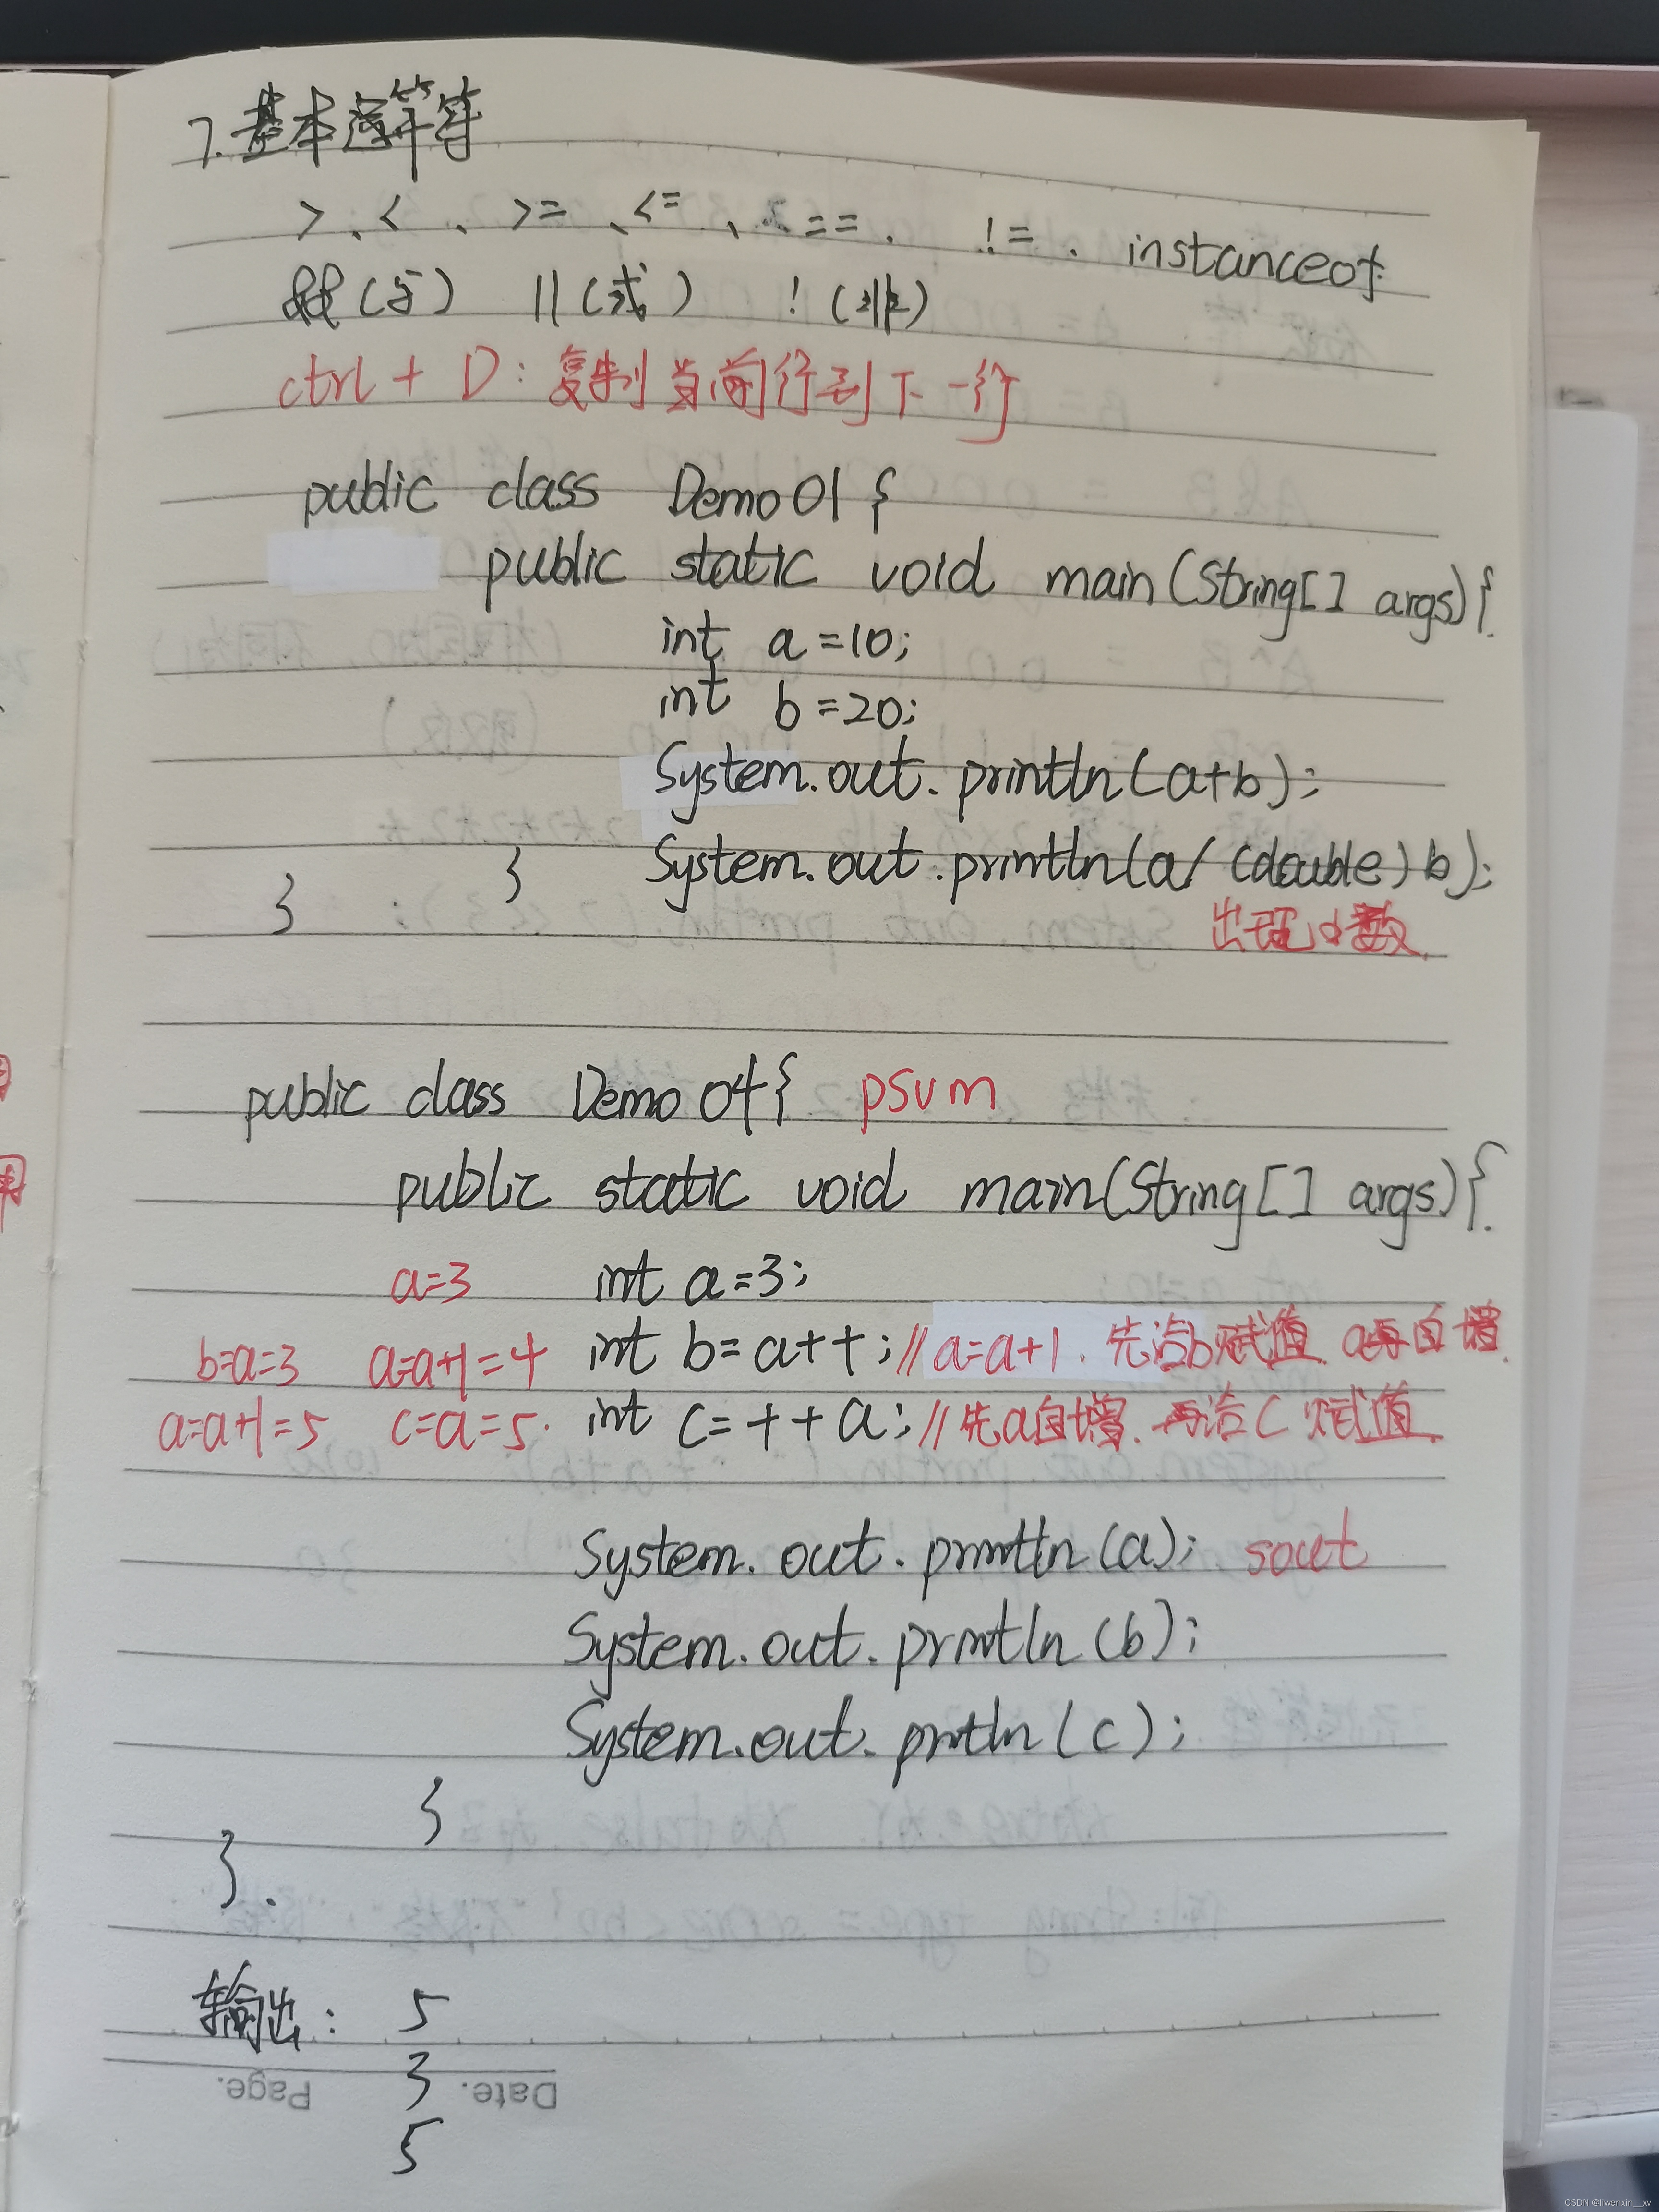 7.基本运算符
>、<、>=、<=、==、!=、instanceof
&&(与) ||(或) !(非)
ctrl + D:复制当前行到下一行
public class Demo01{
public static void main(String[] args){
int a=10;
int b=20;
System.out.println(a+b);
System.out.println(a/(double)b);
}
}
出现小数
public class Demo04{ psvm
public static void main(String[] args){
a=3 int a=3;
b=a=3 a=a+1=4 int b=a++;//a=a+1.先给b赋值 a再自增.
a=a+1=5 c=a=5. int c=++a;//先a自增.再给c赋值
System.out.println(a); sout
System.out.println(b);
System.out.println(c);
}
}.
输出: 5
3
Date. Page.
5
CSDN @liwenxin__xv